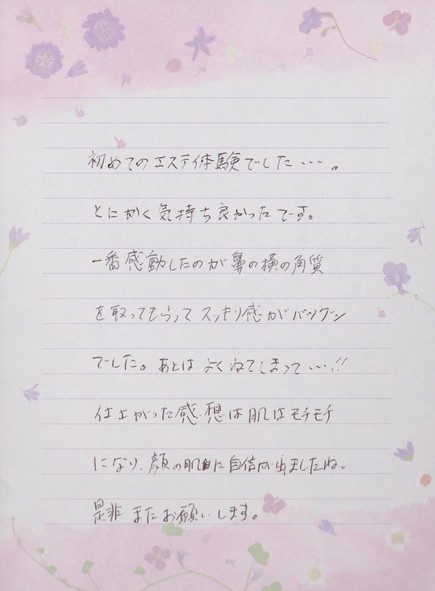 初めてのエステ体験でした・・・。
とにかく気持ち良かったです。
一番感動したのが鼻の横の角質
を取ってもらってスッキリ感がバツグン
でした。あとはよくねてしまって・・・!!
仕上がった感想は肌はモチモチ
になり、顔の肌に自信が出ましたね。
是非またお願いします。